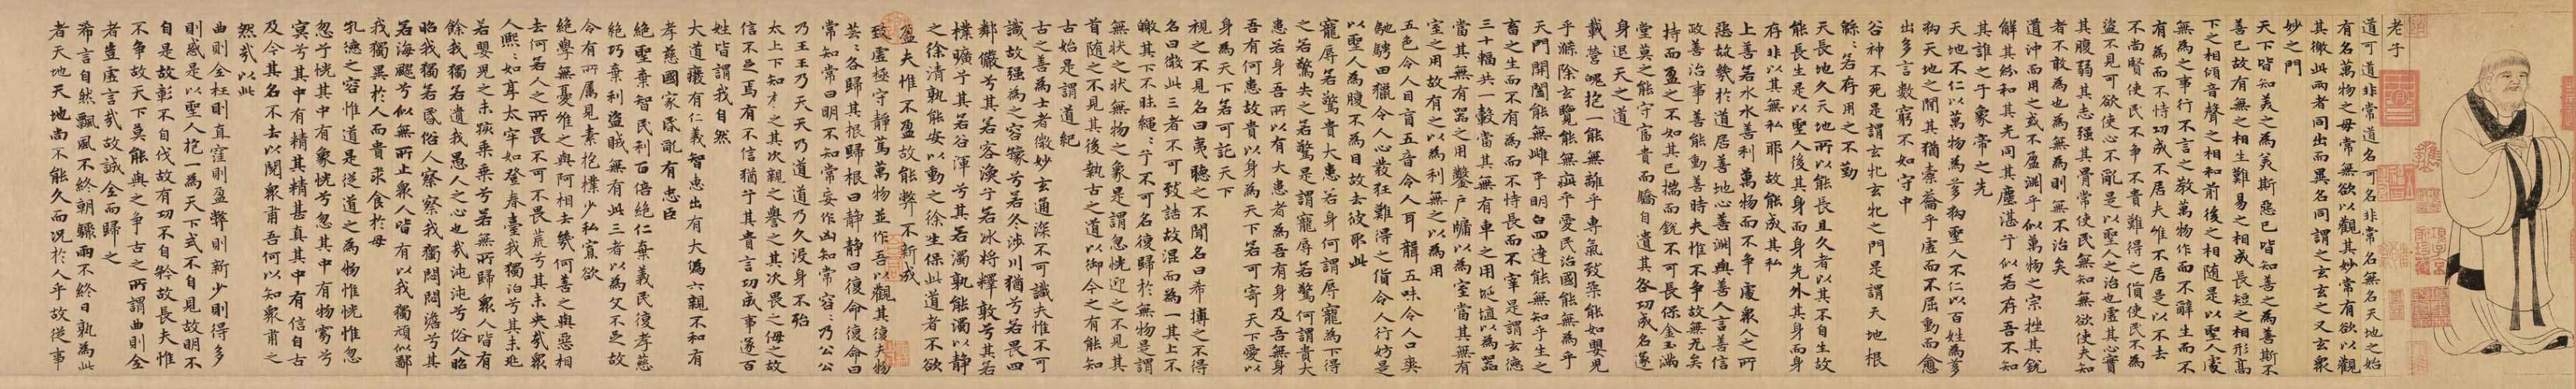 老子
道可道非常道名可名非常名無名天地之始
有名萬物之母常無欲以觀其妙常有欲以觀
其徼此兩者同出而異名同謂之玄玄之又玄衆
妙之門
天下皆知美之為美斯惡已皆知善之為善斯不
善已故有無之相生難易之相成長短之相形高
下之相傾音聲之相和前後之相隨是以聖人處
無為之事行不言之教萬物作而不辭生而不
有為而不恃功成不居夫惟不居是以不去
不尚賢使民不争不貴難得之貨使民不為
盗不見可欲使心不亂是以聖人之治也虛其心實
其腹弱其志强其骨常使民無知無欲使夫知
者不敢為也為無為則無不治矣
道沖而用之或不盈淵乎似萬物之宗挫其銳
解其紛和其光同其塵湛乎似若存吾不知
其誰之子象帝之先
天地不仁以萬物為芻狗聖人不仁以百姓為芻
狗天地之間其猶橐籥乎虛而不屈動而愈
出多言數窮不如守中
谷神不死是謂玄牝玄牝之門是謂天地根
緜緜若存用之不勤
天長地久天地所以能長且久者以其不自生故
能長生是以聖人後其身而身先外其身而身
存非以其無私耶故能成其私
上善若水水善利萬物而不争處衆人之所
惡故幾於道居善地心善淵與善人言善信
政善治事善能動善時夫惟不争故無尤矣
持而盈之不如其已揣而銳不可長保金玉滿
堂莫之能守富貴而驕自遺其咎功成名遂
身退天之道
載營魄抱一能無離乎專氣致柔能如嬰兒
乎滌除玄覽能無疵乎愛民治國能無為乎
天門開闔能無雌乎明白四達能無知乎生之
畜之生而不有為而不恃長而不宰是謂玄德
三十輻共一轂當其無有車之用埏埴以為器
當其無有器之用鑿戶牖以為室當其無有
室之用故有之以為利無之以為用
五色令人目盲五音令人耳聾五味令人口爽
馳騁田獵令人心發狂難得之貨令人行妨是
以聖人為腹不為目故去彼取此
寵辱若驚貴大患若身何謂辱寵為下得
之若驚失之若驚是謂寵辱若驚何謂貴大
患若身吾所以有大患者為吾有身及吾無身
吾有何患故貴以身為天下若可寄天下愛以
身為天下若可託天下
視之不見名曰夷聽之不聞名曰希摶之不得
名曰微此三者不可致詰故混而為一其上不
皦其下不昧繩繩乎不可名復歸於無物是謂
無狀之狀無物之象是謂忽恍迎之不見其
首隨之不見其後執古之道以御今之有能知
古始是謂道紀
古之善為士者微妙玄通深不可識夫惟不可
識故强為之容豫兮若冬涉川猶兮若畏四
鄰儼兮其若客渙乎若冰將釋敦兮其若
樸曠乎其若谷渾兮其若濁孰能濁以静
之徐清孰能安以動之徐生保此道者不欲
盈夫惟不盈故能弊不新成
致虛極守静篤萬物並作吾以觀其復夫物
芸芸各歸其根歸根曰静静曰復命復命曰
常知常曰明不知常妄作凶知常容容乃公公
乃王王乃天天乃道道乃久没身不殆
太上下知有之其次親之譽之其次畏之侮之故
信不足焉有不信猶乎其貴言功成事遂百
姓皆謂我自然
大道廢有仁義智惠出有大偽六親不和有
孝慈國家昏亂有忠臣
絕聖棄智民利百倍絕仁棄義民復孝慈
絕巧棄利盗賊無有此三者以為文不足故
令有所屬見素抱樸少私寡欲
絕學無憂唯之與阿相去幾何善之與惡相
去何若人之所畏不可不畏荒兮其未央哉衆
人熙熙如享太牢如登春臺我獨泊兮其未兆
若嬰兒之未孩乘乘兮若無所歸衆人皆有
餘我獨若遺我愚人之心也哉沌沌兮俗人昭
昭我獨若昏俗人察察我獨悶悶澹兮其
若海飂兮似無所止衆人皆有以我獨頑似鄙
我獨異於人而貴求食於母
孔德之容惟道是從道之為物惟恍惟忽
忽兮恍其中有象恍兮忽其中有物窈兮
冥兮其中有精其精甚真其中有信自古
及今其名不去以閱衆甫吾何以知衆甫之
然哉以此
曲則全枉則直窪則盈弊則新少則得多
則惑是以聖人抱一為天下式不自見故明不
自是故彰不自伐故有功不自矜故長夫惟
不争故天下莫能與之争古之所謂曲則全
者豈虛言哉故誠全而歸之
希言自然飄風不終朝驟雨不終日孰為此
者天地天地尚不能久而况於人乎故從事